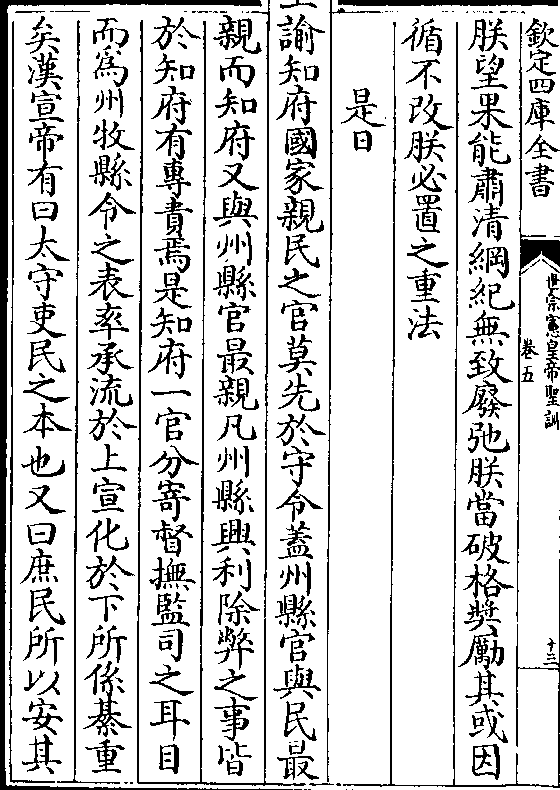 欽定四庫全書
世宗憲皇帝聖訓
卷五
十三
朕望果能肅清綱紀無致廢弛朕當破格奬勵其或因
循不改朕必置之重法
是日
上諭知府國家親民之官莫先於守令蓋州縣官與民最
親而知府又與州縣官最親凡州縣興利除弊之事皆
於知府有專責焉是知府一官分寄督撫監司之耳目
而為州牧縣令之表率承流於上宣化於下所係綦重
矣漢宣帝有曰太守吏民之本也又曰庶民所以安其